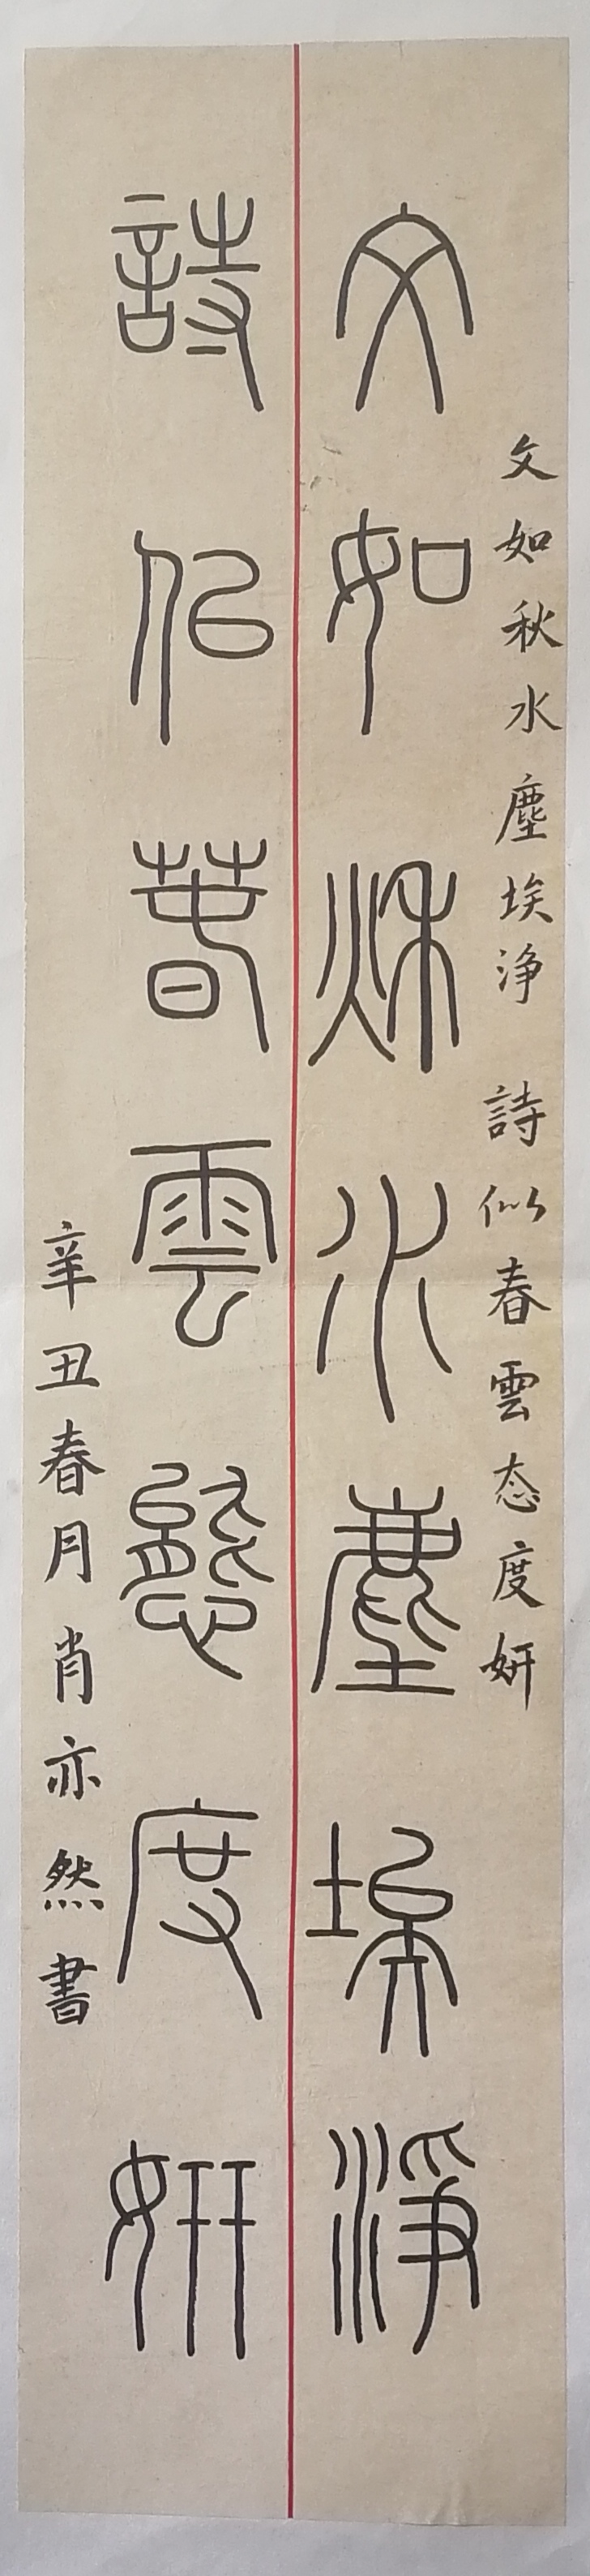 文如秋水塵埃淨 詩似春雲态度妍
文如秋水塵埃淨
詩似春雲態度妍
辛丑春月肖亦然書